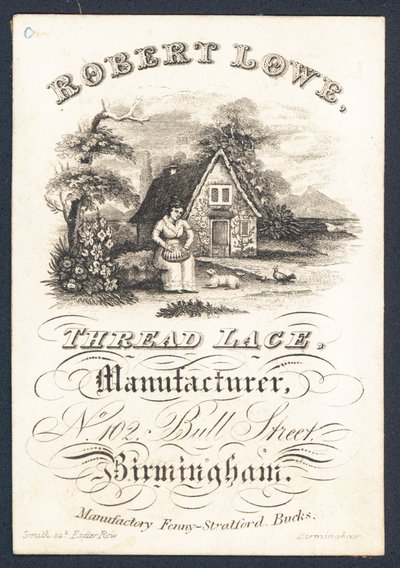 ROBERT LOWE,
THREAD LACE,
Manufacturer,
No. 102. Bull Street.
Birmingham.
Manufactory Fenny-Stratford. Bucks.
Smith sct. Exeter Row Birmingham.